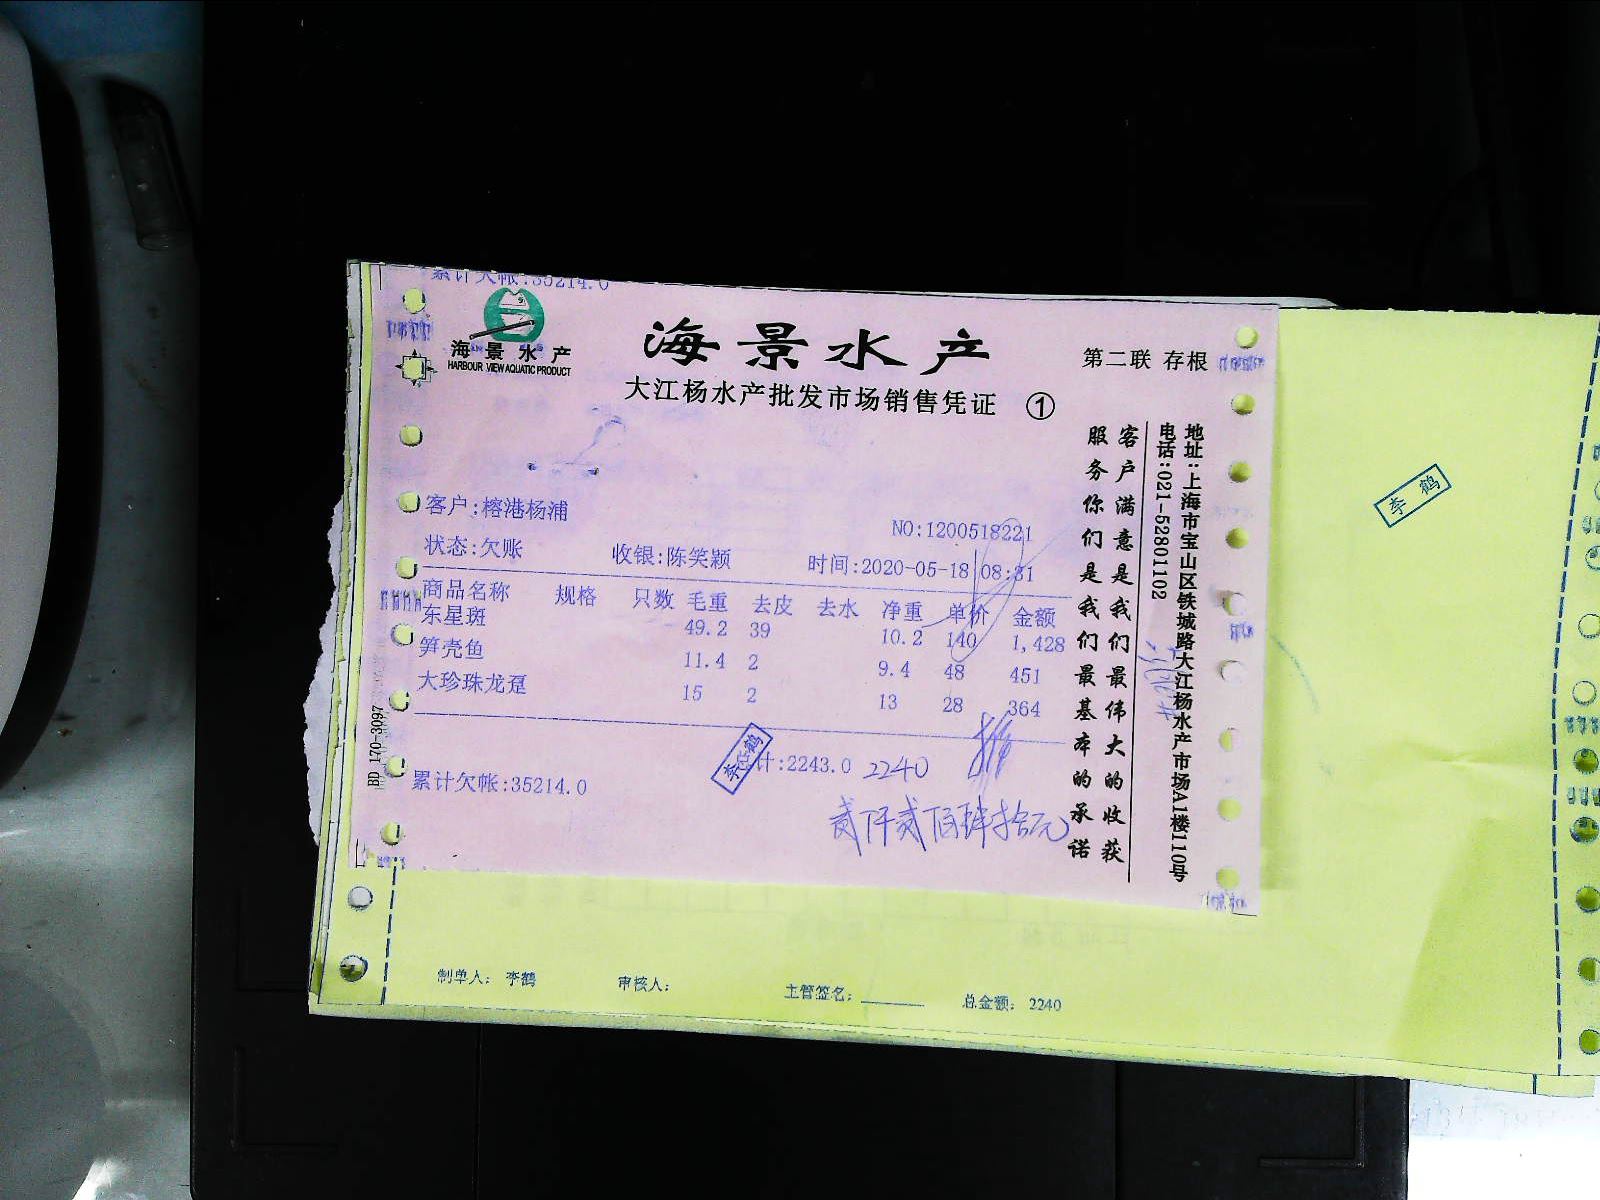 累计欠帐:35214.0
海景水产
HARBOUR VIEW AQUATIC PRODUCT
海景水产
第二联 存根
大江杨水产批发市场销售凭证 ①
客户:榕港杨浦
NO:1200518221
状态:欠账 收银:陈笑颖 时间:2020-05-18 08:31
商品名称 规格 只数 毛重 去皮 去水 净重 单价 金额
东星斑 49.2 39 10.2 140 1,428
笋壳鱼 11.4 2 9.4 48 451
大珍珠龙趸 15 2 13 28 364
计:2243.0 2240
李鹤
累计欠帐:35214.0
贰仟贰佰肆拾元
客户满意是我们最伟大的收获
服务你们是我们最基本的承诺
地址:上海市宝山区铁城路大江杨水产市场A1楼110号
电话:021-52801102
BD 170-3097
李鹤
制单人: 李鹤 审核人: 主管签名: 总金额: 2240